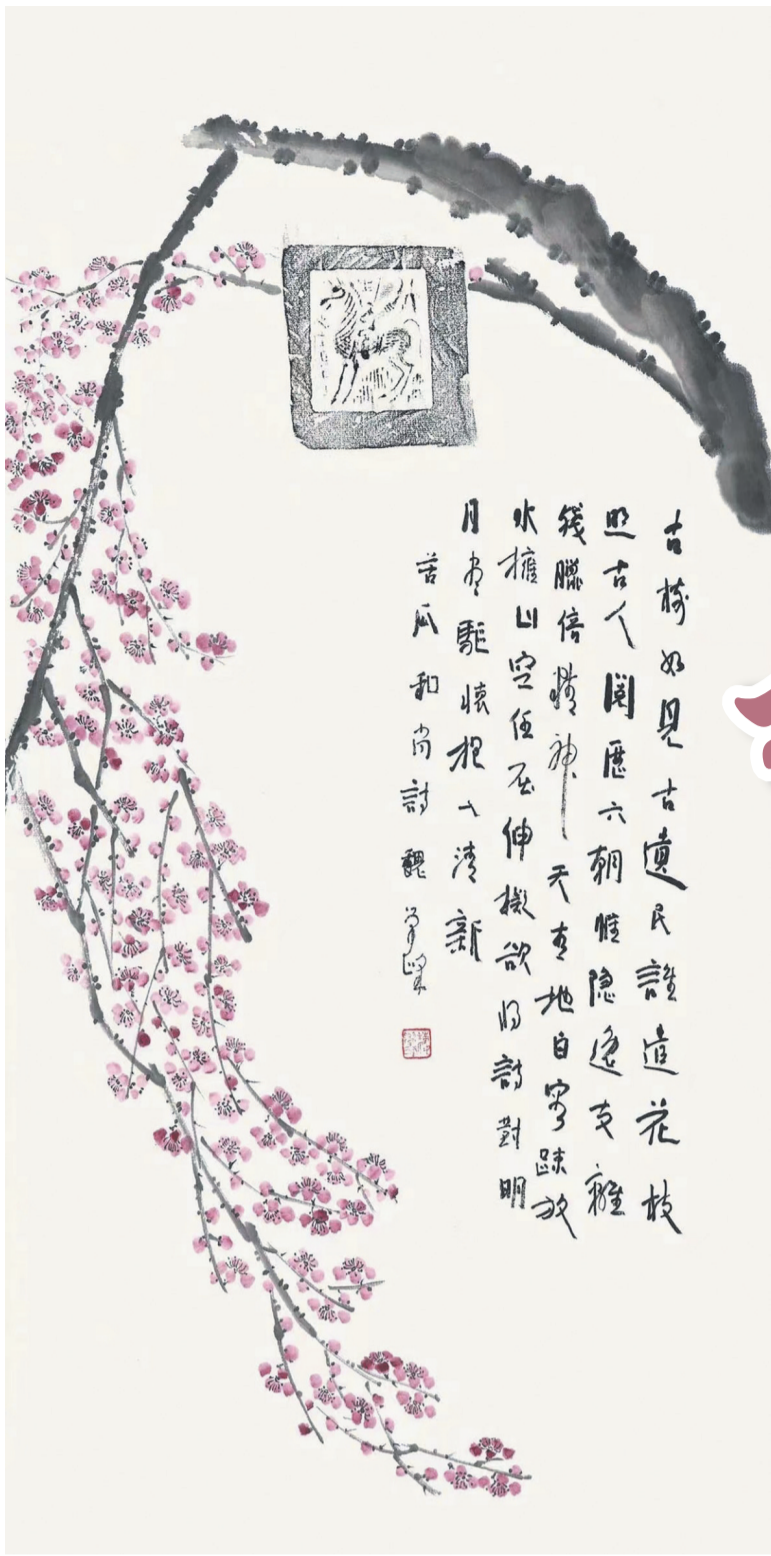 古梅如見古遺民誰遣花枝
照古人閱歷六朝惟隐逸支離
殘臘倍精神天青地白容踈放
水擁山空任屈伸擬欲将詩對明
月尽驅懷抱入清新
苦瓜和尚詩 魏學峰